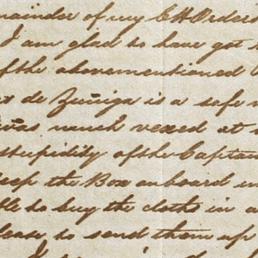 mainder of my Ex Orders
I am glad to have got
of the abovementioned
de Zuñiga is a safe
was much vexed at
stupidity of the Captain
keep the Box onboard
to buy the cloths in a
please to send them up